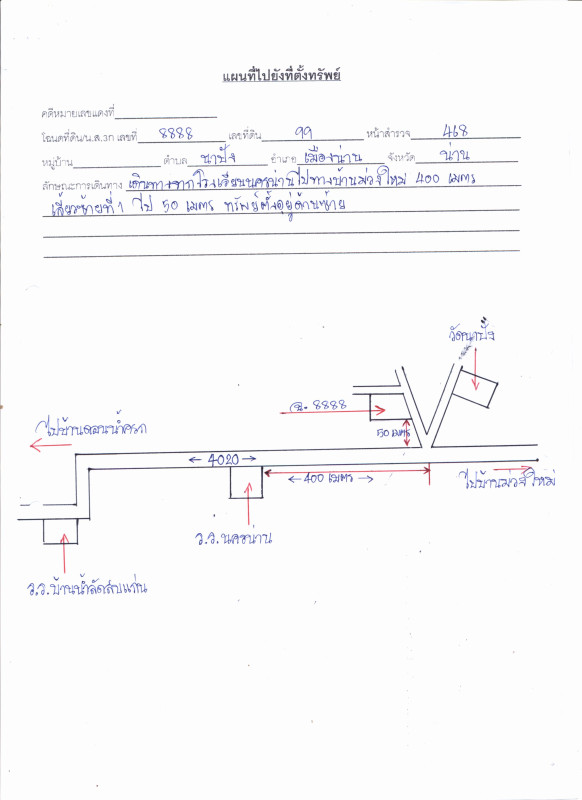 แผนที่ไปยังที่ตั้งทรัพย์
คดีหมายเลขแดงที่
โฉนดที่ดิน/น.ส.3ก เลขที่ 8888 เลขที่ดิน 99 หน้าสำรวจ 468
หมู่บ้าน ตำบล นาปัง อำเภอ เมืองน่าน จังหวัด น่าน
ลักษณะการเดินทาง เดินทางจากโรงเรียนนครน่านไปทางบ้านม่วงใหม่ 400 เมตร
เลี้ยวซ้ายที่ 1 ไป 50 เมตร ทรัพย์ตั้งอยู่ด้านซ้าย
วัดนาปัง
ฉ. 8888
50 เมตร
ไปบ้านดอนน้ำครก
4020
400 เมตร
ไปบ้านม่วงใหม่
ร.ร.นครน่าน
ร.ร.บ้านน้ำลัดสบแก่น